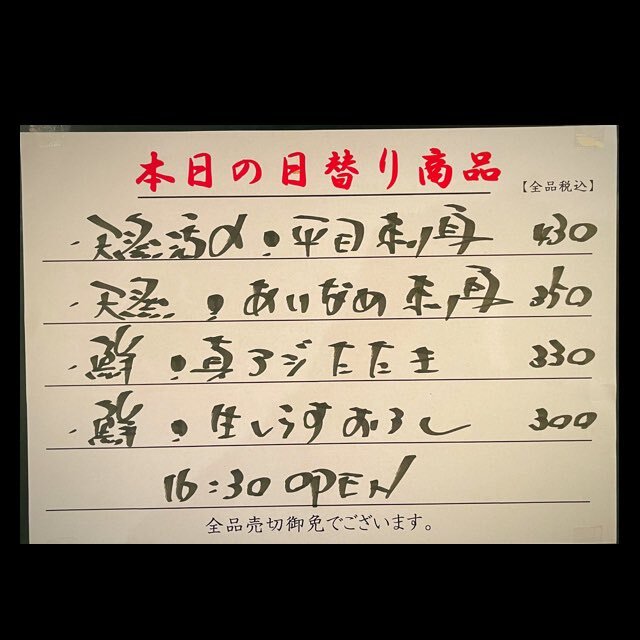 本日の日替り商品
【全品税込】
・天然活〆・平目刺身 430
・天然・あいなめ刺身 350
・鮮・真アジたたき 330
・鮮・生しらすおろし 300
16:30 OPEN
全品売切御免でございます。